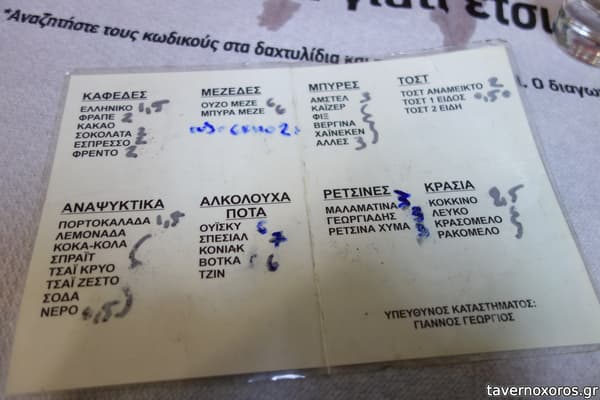 *Αναζητήστε τους κωδικούς στα δαχτυλίδια και
γιατί έτσι
. Ο διαγω
ΚΑΦΕΔΕΣ
ΕΛΛΗΝΙΚΟ 1,5
ΦΡΑΠΕ 2
ΚΑΚΑΟ
ΣΟΚΟΛΑΤΑ 2
ΕΣΠΡΕΣΣΟ 2
ΦΡΕΝΤΟ 2
ΜΕΖΕΔΕΣ
ΟΥΖΟ ΜΕΖΕ 6
ΜΠΥΡΑ ΜΕΖΕ 6
ΜΠΥΡΕΣ
ΑΜΣΤΕΛ 3
ΚΑΪΖΕΡ
ΦΙΞ
ΒΕΡΓΙΝΑ
ΧΑΪΝΕΚΕΝ
ΑΛΛΕΣ 3
ΤΟΣΤ
ΤΟΣΤ ΑΝΑΜΕΙΚΤΟ 2
ΤΟΣΤ 1 ΕΙΔΟΣ
ΤΟΣΤ 2 ΕΙΔΗ
ΑΝΑΨΥΚΤΙΚΑ
ΠΟΡΤΟΚΑΛΑΔΑ 1,5
ΛΕΜΟΝΑΔΑ
ΚΟΚΑ-ΚΟΛΑ
ΣΠΡΑΪΤ
ΤΣΑΪ ΚΡΥΟ
ΤΣΑΪ ΖΕΣΤΟ
ΣΟΔΑ
ΝΕΡΟ
ΑΛΚΟΛΟΥΧΑ
ΠΟΤΑ
ΟΥΪΣΚΥ 6
ΣΠΕΣΙΑΛ 7
ΚΟΝΙΑΚ
ΒΟΤΚΑ 6
ΤΖΙΝ
ΡΕΤΣΙΝΕΣ
ΜΑΛΑΜΑΤΙΝΑ
ΓΕΩΡΓΙΑΔΗΣ
ΡΕΤΣΙΝΑ ΧΥΜΑ
ΚΡΑΣΙΑ
ΚΟΚΚΙΝΟ 2,5
ΛΕΥΚΟ
ΚΡΑΣΟΜΕΛΟ
ΡΑΚΟΜΕΛΟ
ΥΠΕΥΘΥΝΟΣ ΚΑΤΑΣΤΗΜΑΤΟΣ:
ΓΙΑΝΝΟΣ ΓΕΩΡΓΙΟΣ
tavernoxoros.gr